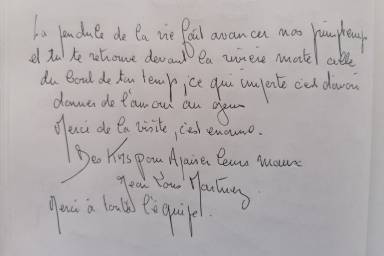 La pendule de la vie fait avancer nos printemps
et tu te retrouve devant la rivière morte celle
du bout de ton temp, ce qui importe c'est d'avoir
donner de l'amour au gens
Merci de la visite, c'est enorme.
Des Kms pour Apaiser leurs maux
Jean Louis Martinez
Merci à toute l'équipe.